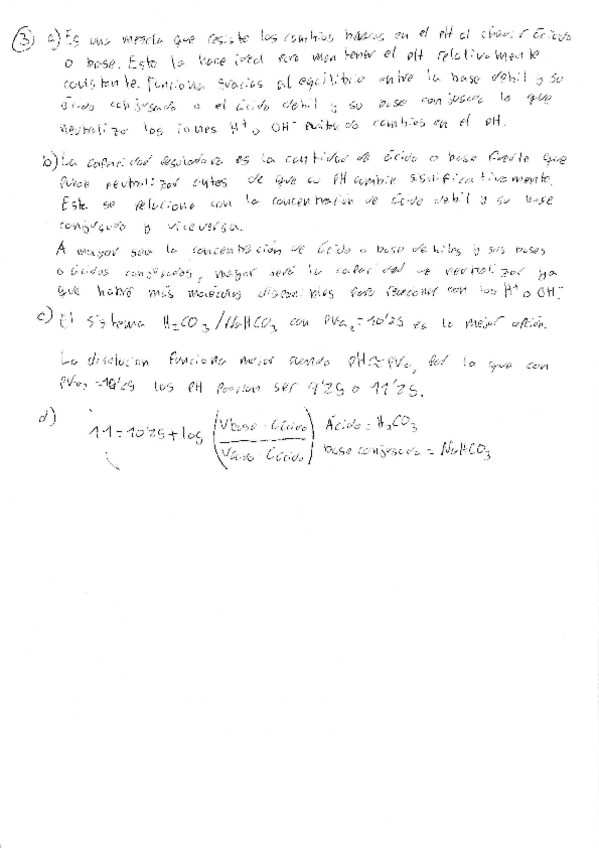 3) a) Es una mezcla que resiste los cambios bruscos en el pH al añadir ácido
o base. Esto la hace ideal para mantener el pH relativamente
constante. Funciona gracias al equilibrio entre la base débil y su
ácido conjugado o el ácido débil y su base conjugada lo que
neutraliza los iones H⁺ o OH⁻ evitando cambios en el pH.
b) La capacidad reguladora es la cantidad de ácido o base fuerte que
puede neutralizar antes de que su pH cambie significativamente.
Esta se relaciona con la concentración de ácido débil y su base
conjugada y viceversa.
A mayor sea la concentración de ácido o base débiles y sus bases
o ácidos conjugados, mayor será la capacidad de neutralizar ya
que habrá más moléculas disponibles para reaccionar con los H⁺ o OH⁻
c) El sistema H₂CO₃/NaHCO₃ con PKa₂=10'25 es la mejor opción.
La disolución funciona mejor cuando PH≈PKa, por lo que con
PKa₂=10'25 los PH podrían ser 9'25 o 11'25.
d) 11=10'25+log (Vbase · Cácido / Vácido · Cácido) Ácido=H₂CO₃
base conjugada=NaHCO₃